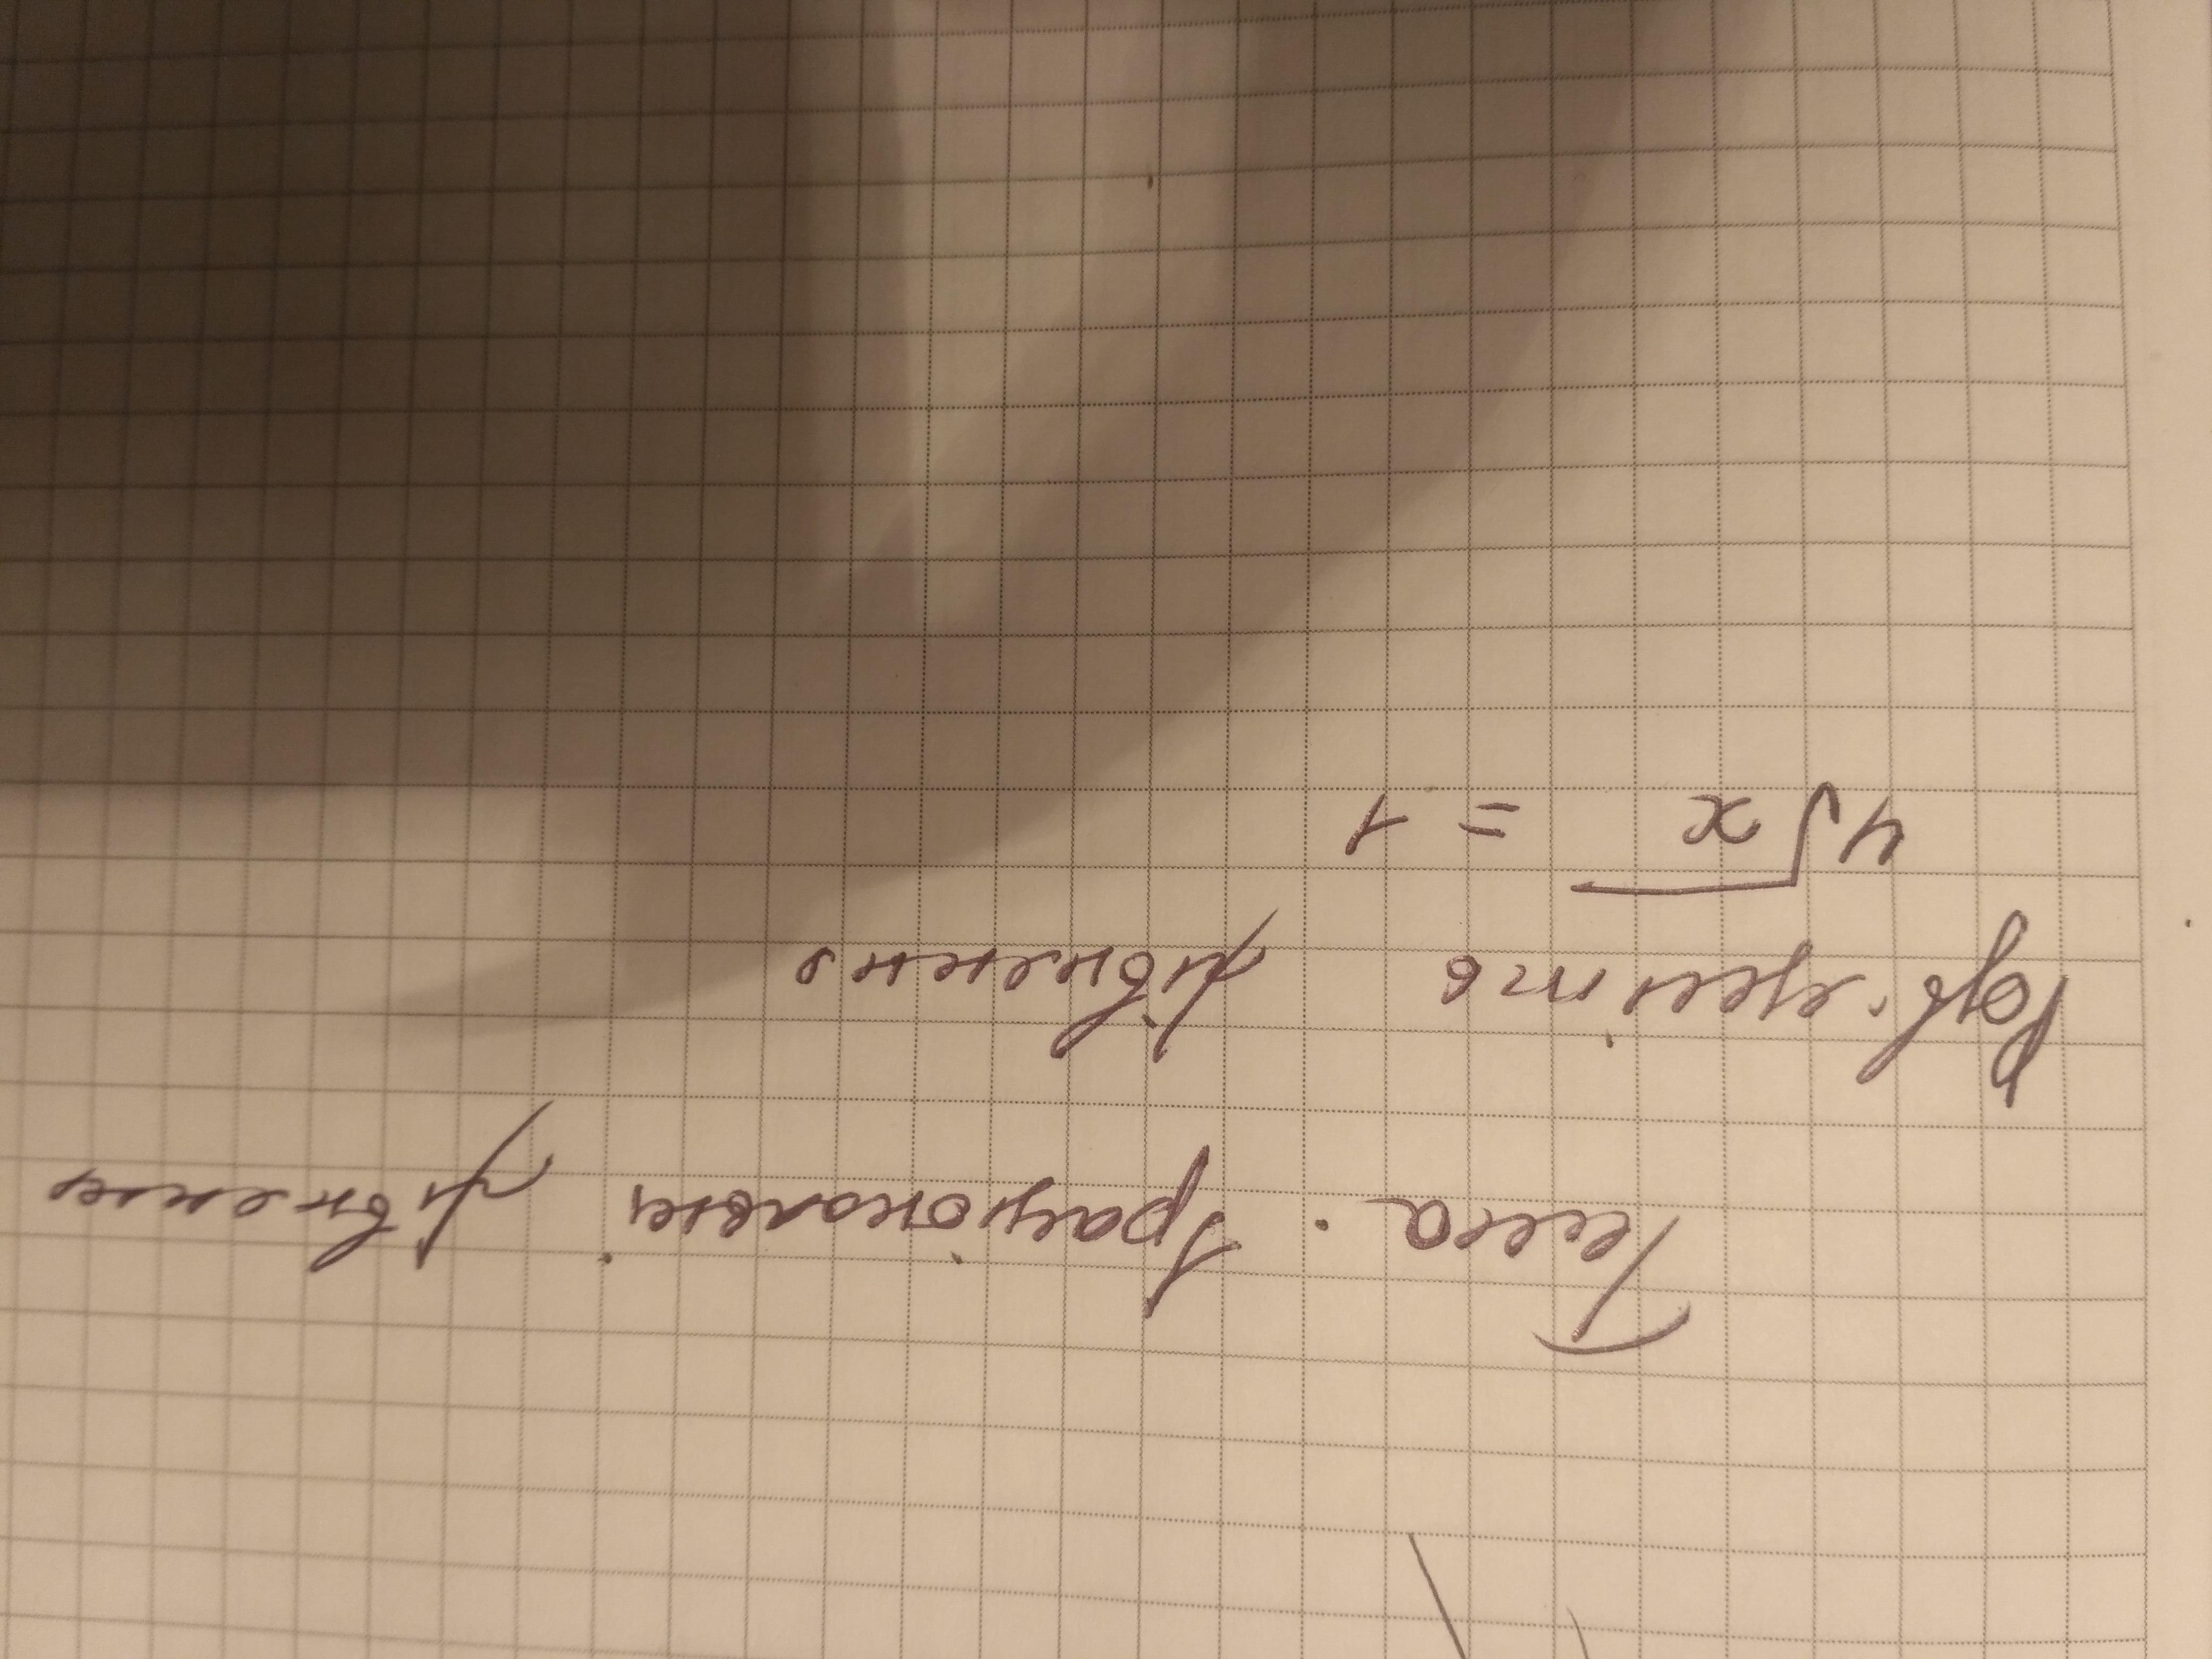 Тема. Ірраціональні рівняння
Розв'яжіть рівняння
4√x = 1